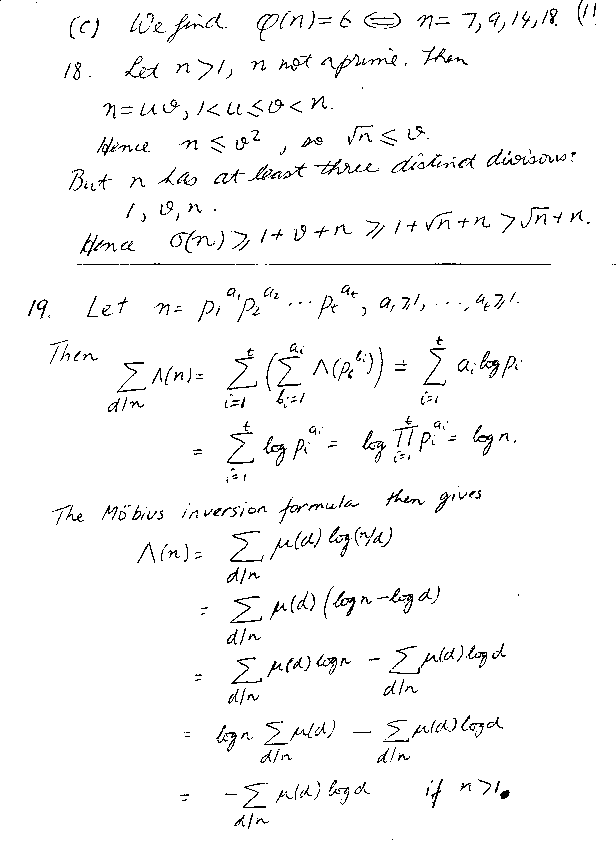 (c) We find φ(n)=6 ⇔ n= 7,9,14,18. (11
18. Let n>1, n not a prime. Then
n=uv, 1<u≤v<n.
Hence n ≤ v², so √n ≤ v.
But n has at least three distinct divisors:
1, v, n.
Hence σ(n) ≥ 1+v+n ≥ 1+√n+n > √n+n.
19. Let n= p₁^{a₁} p₂^{a₂} ··· p_t^{a_t}, a₁≥1, ..., a_t≥1.
Then ∑_{d|n} Λ(n) = ∑_{i=1}^{t} (∑_{b_i=1}^{a_i} Λ(p_i^{b_i})) = ∑_{i=1}^{t} a_i log p_i
= ∑_{i=1}^{t} log p_i^{a_i} = log ∏_{i=1}^{t} p_i^{a_i} = log n.
The Möbius inversion formula then gives
Λ(n) = ∑_{d|n} μ(d) log(n/d)
= ∑_{d|n} μ(d) (log n − log d)
= ∑_{d|n} μ(d) log n − ∑_{d|n} μ(d) log d
= log n ∑_{d|n} μ(d) − ∑_{d|n} μ(d) log d
= −∑_{d|n} μ(d) log d if n>1.